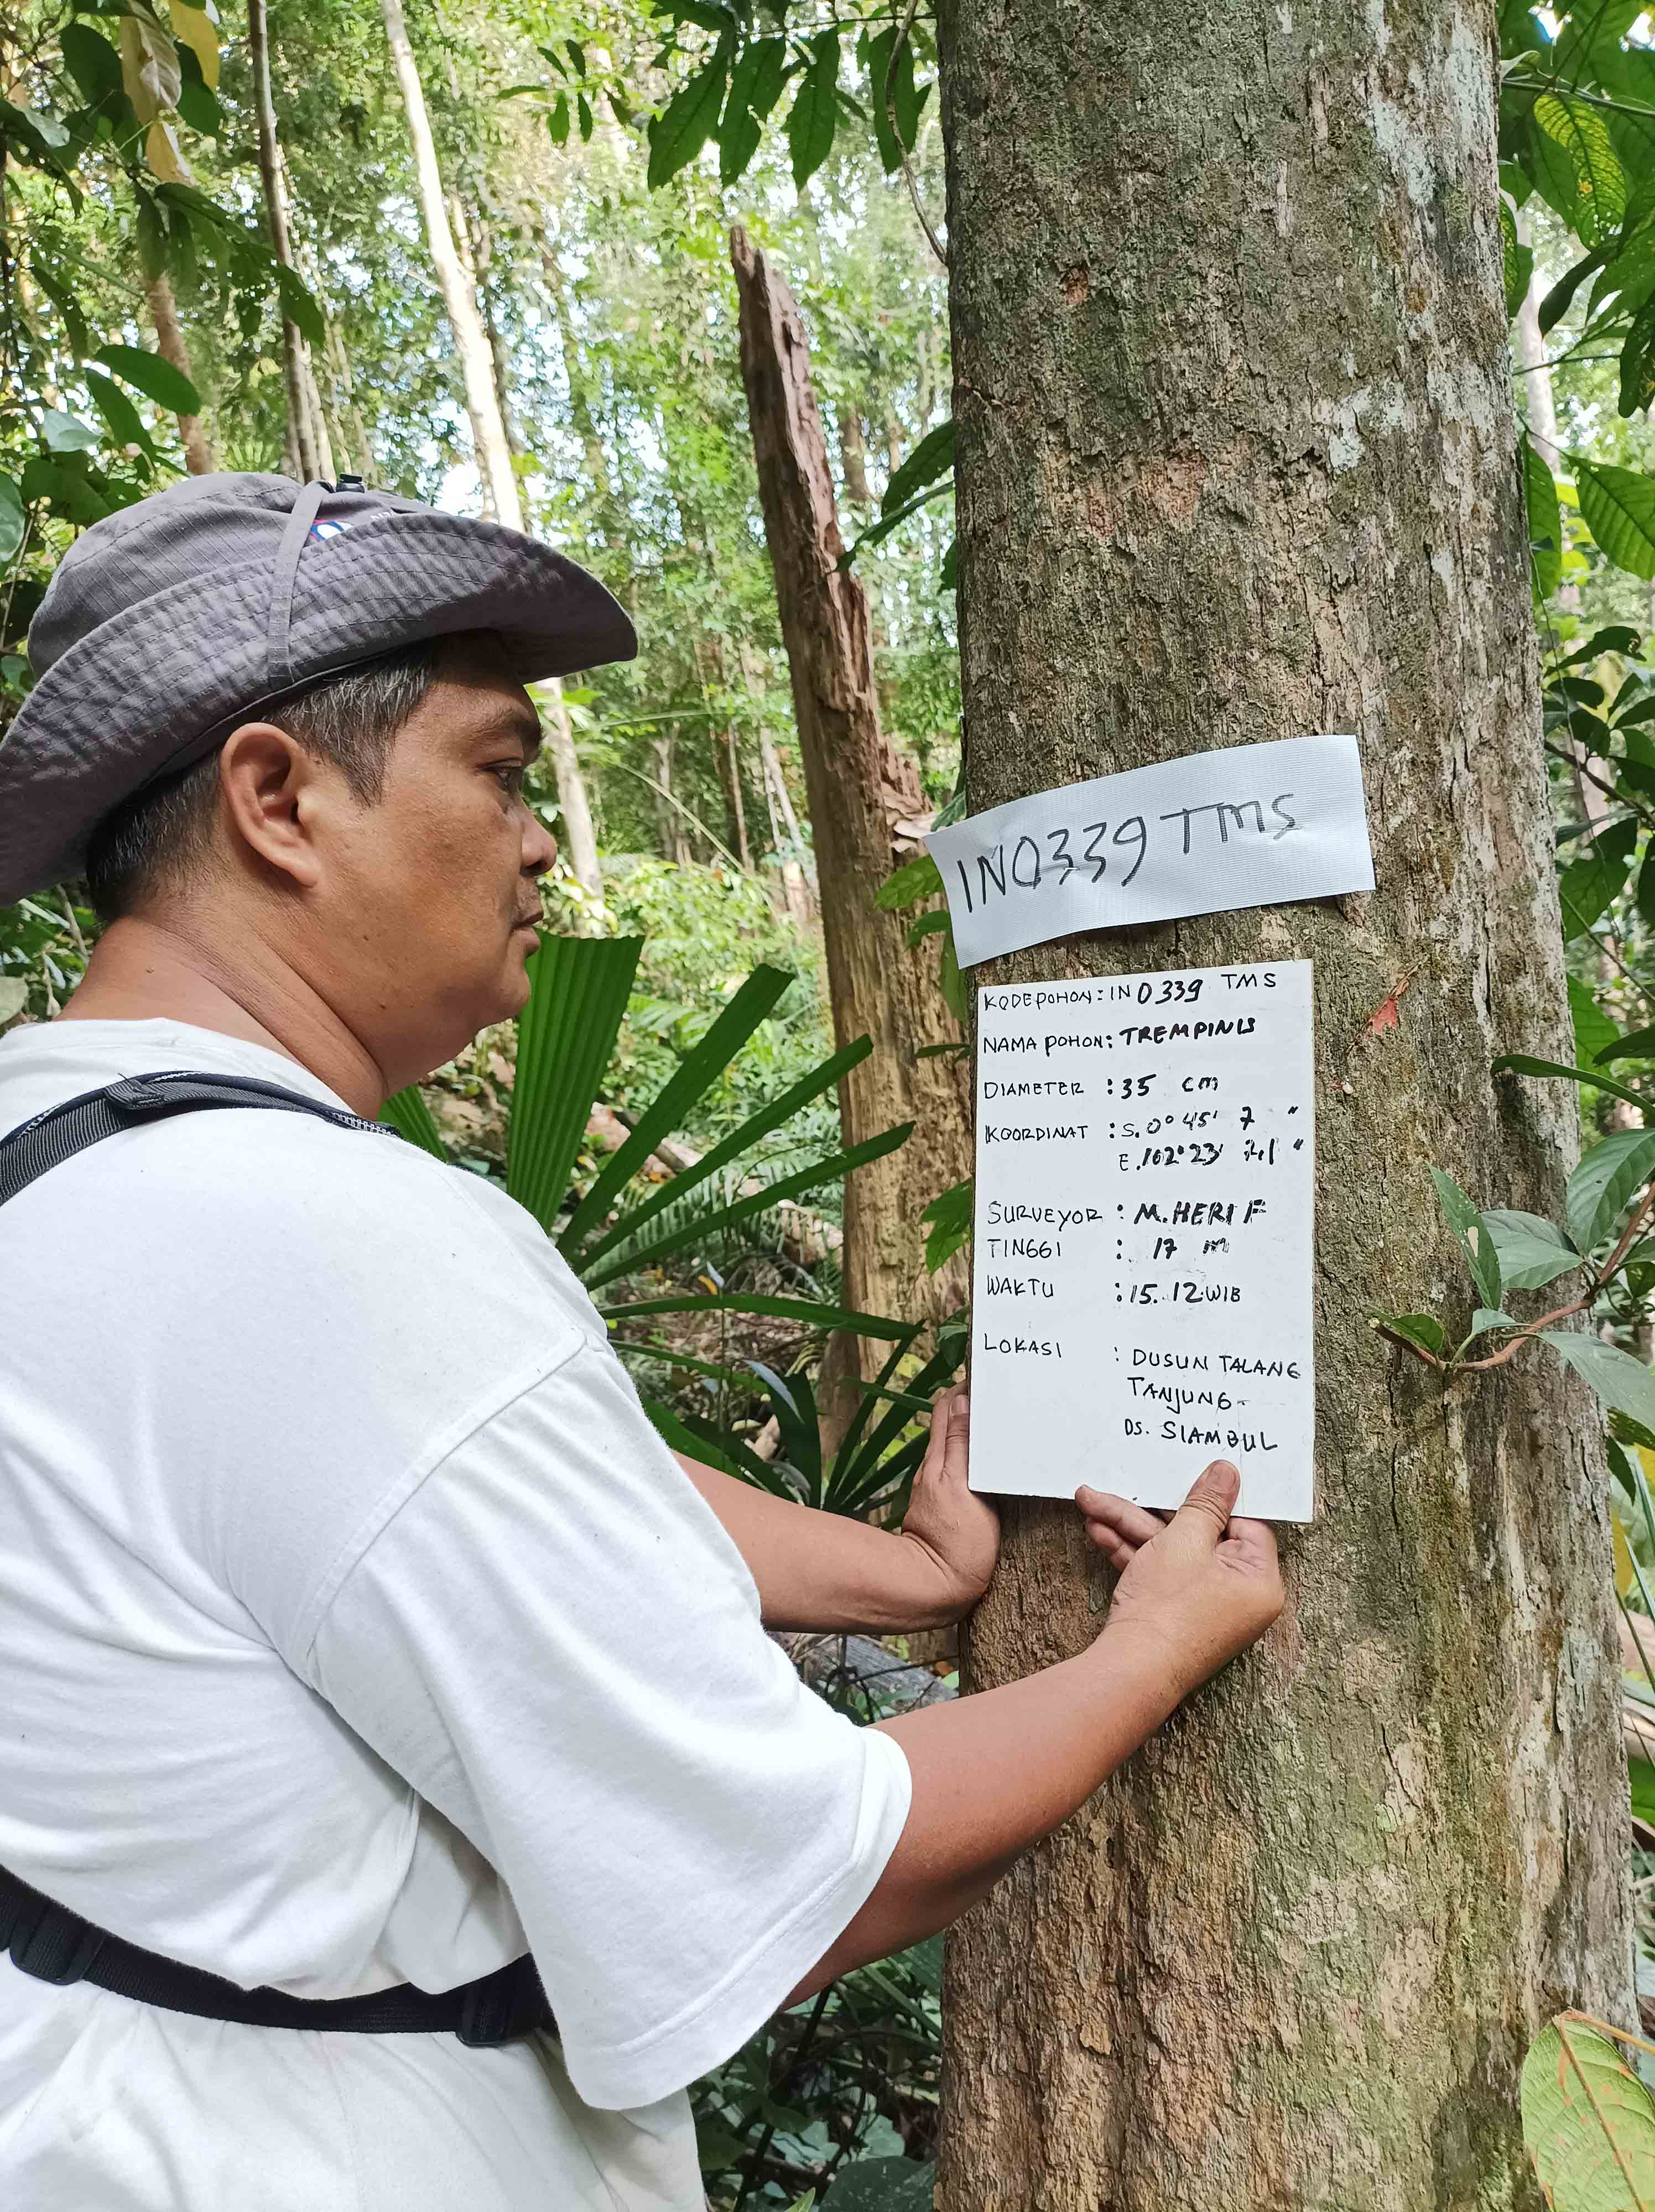 IN0339 TMS
KODE POHON : IN 0339 TMS
NAMA POHON : TREMPINIS
DIAMETER : 35 cm
KOORDINAT : S. 0° 45' 7 "
E. 102° 23' "
SURVEYOR : M. HERI F
TINGGI : 17 m
WAKTU : 15. 12 WIB
LOKASI : DUSUN TALANG
TANJUNG -
DS. SIAMBUL